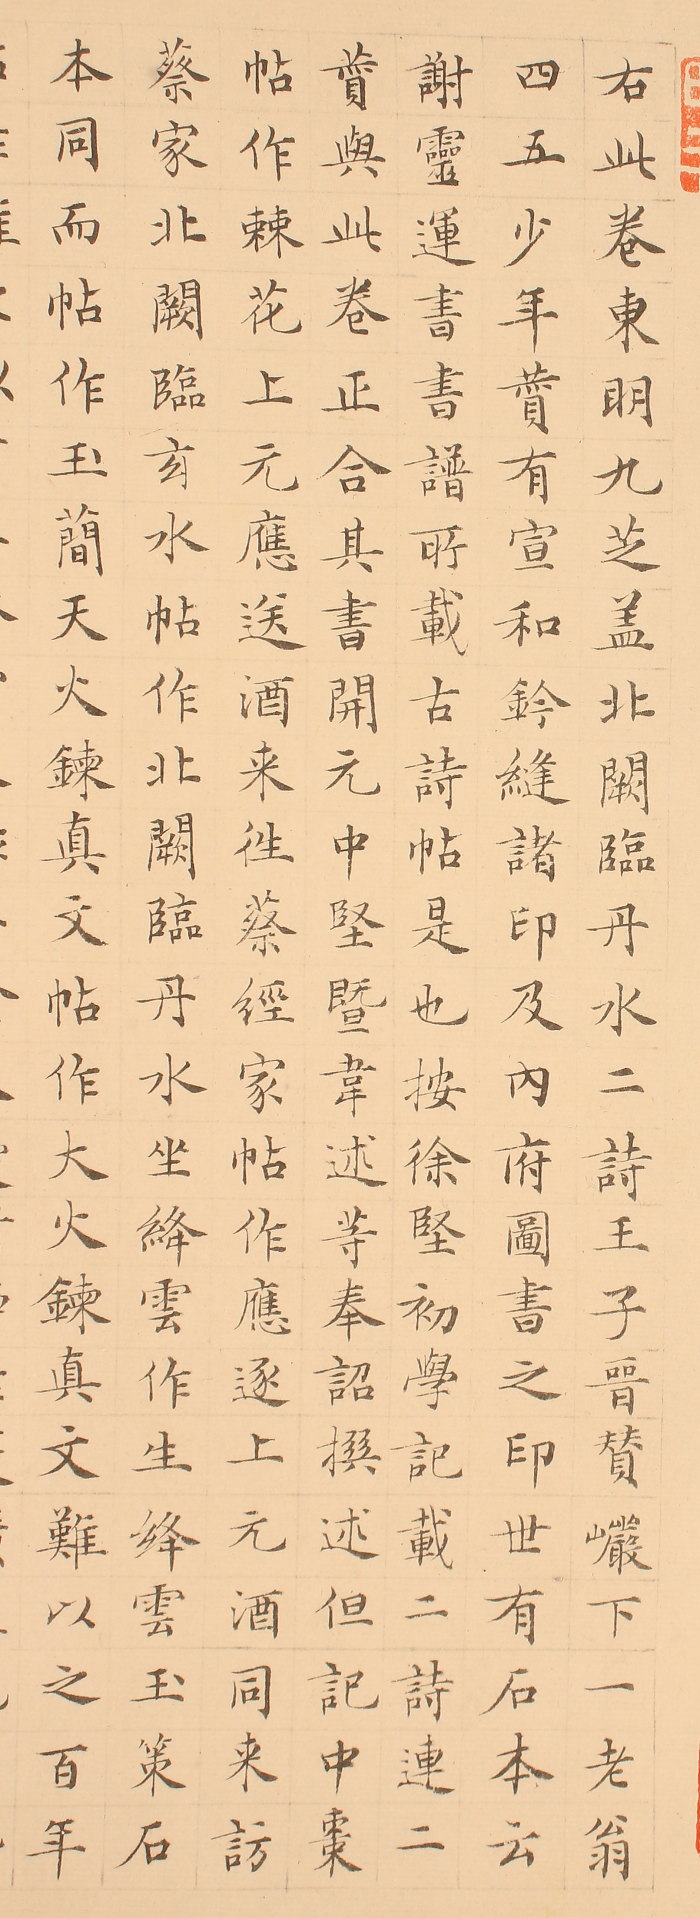 右此卷東明九芝盖北闕臨丹水二詩王子晉贊巘下一老翁
四五少年賛有宣和鈐縫諸印及內府圖書之印世有石本云
謝靈運書書譜所載古詩帖是也按徐堅初學記載二詩連二
賛與此卷正合其書開元中堅暨韋述等奉詔撰述但記中棗
帖作棘花上元應送酒来徃蔡經家帖作應逐上元酒同来訪
蔡家北闕臨玄水帖作北闕臨丹水坐絳雲作生絳雲玉策石
本同而帖作玉簡天火鍊真文帖作大火鍊真文難以之百年